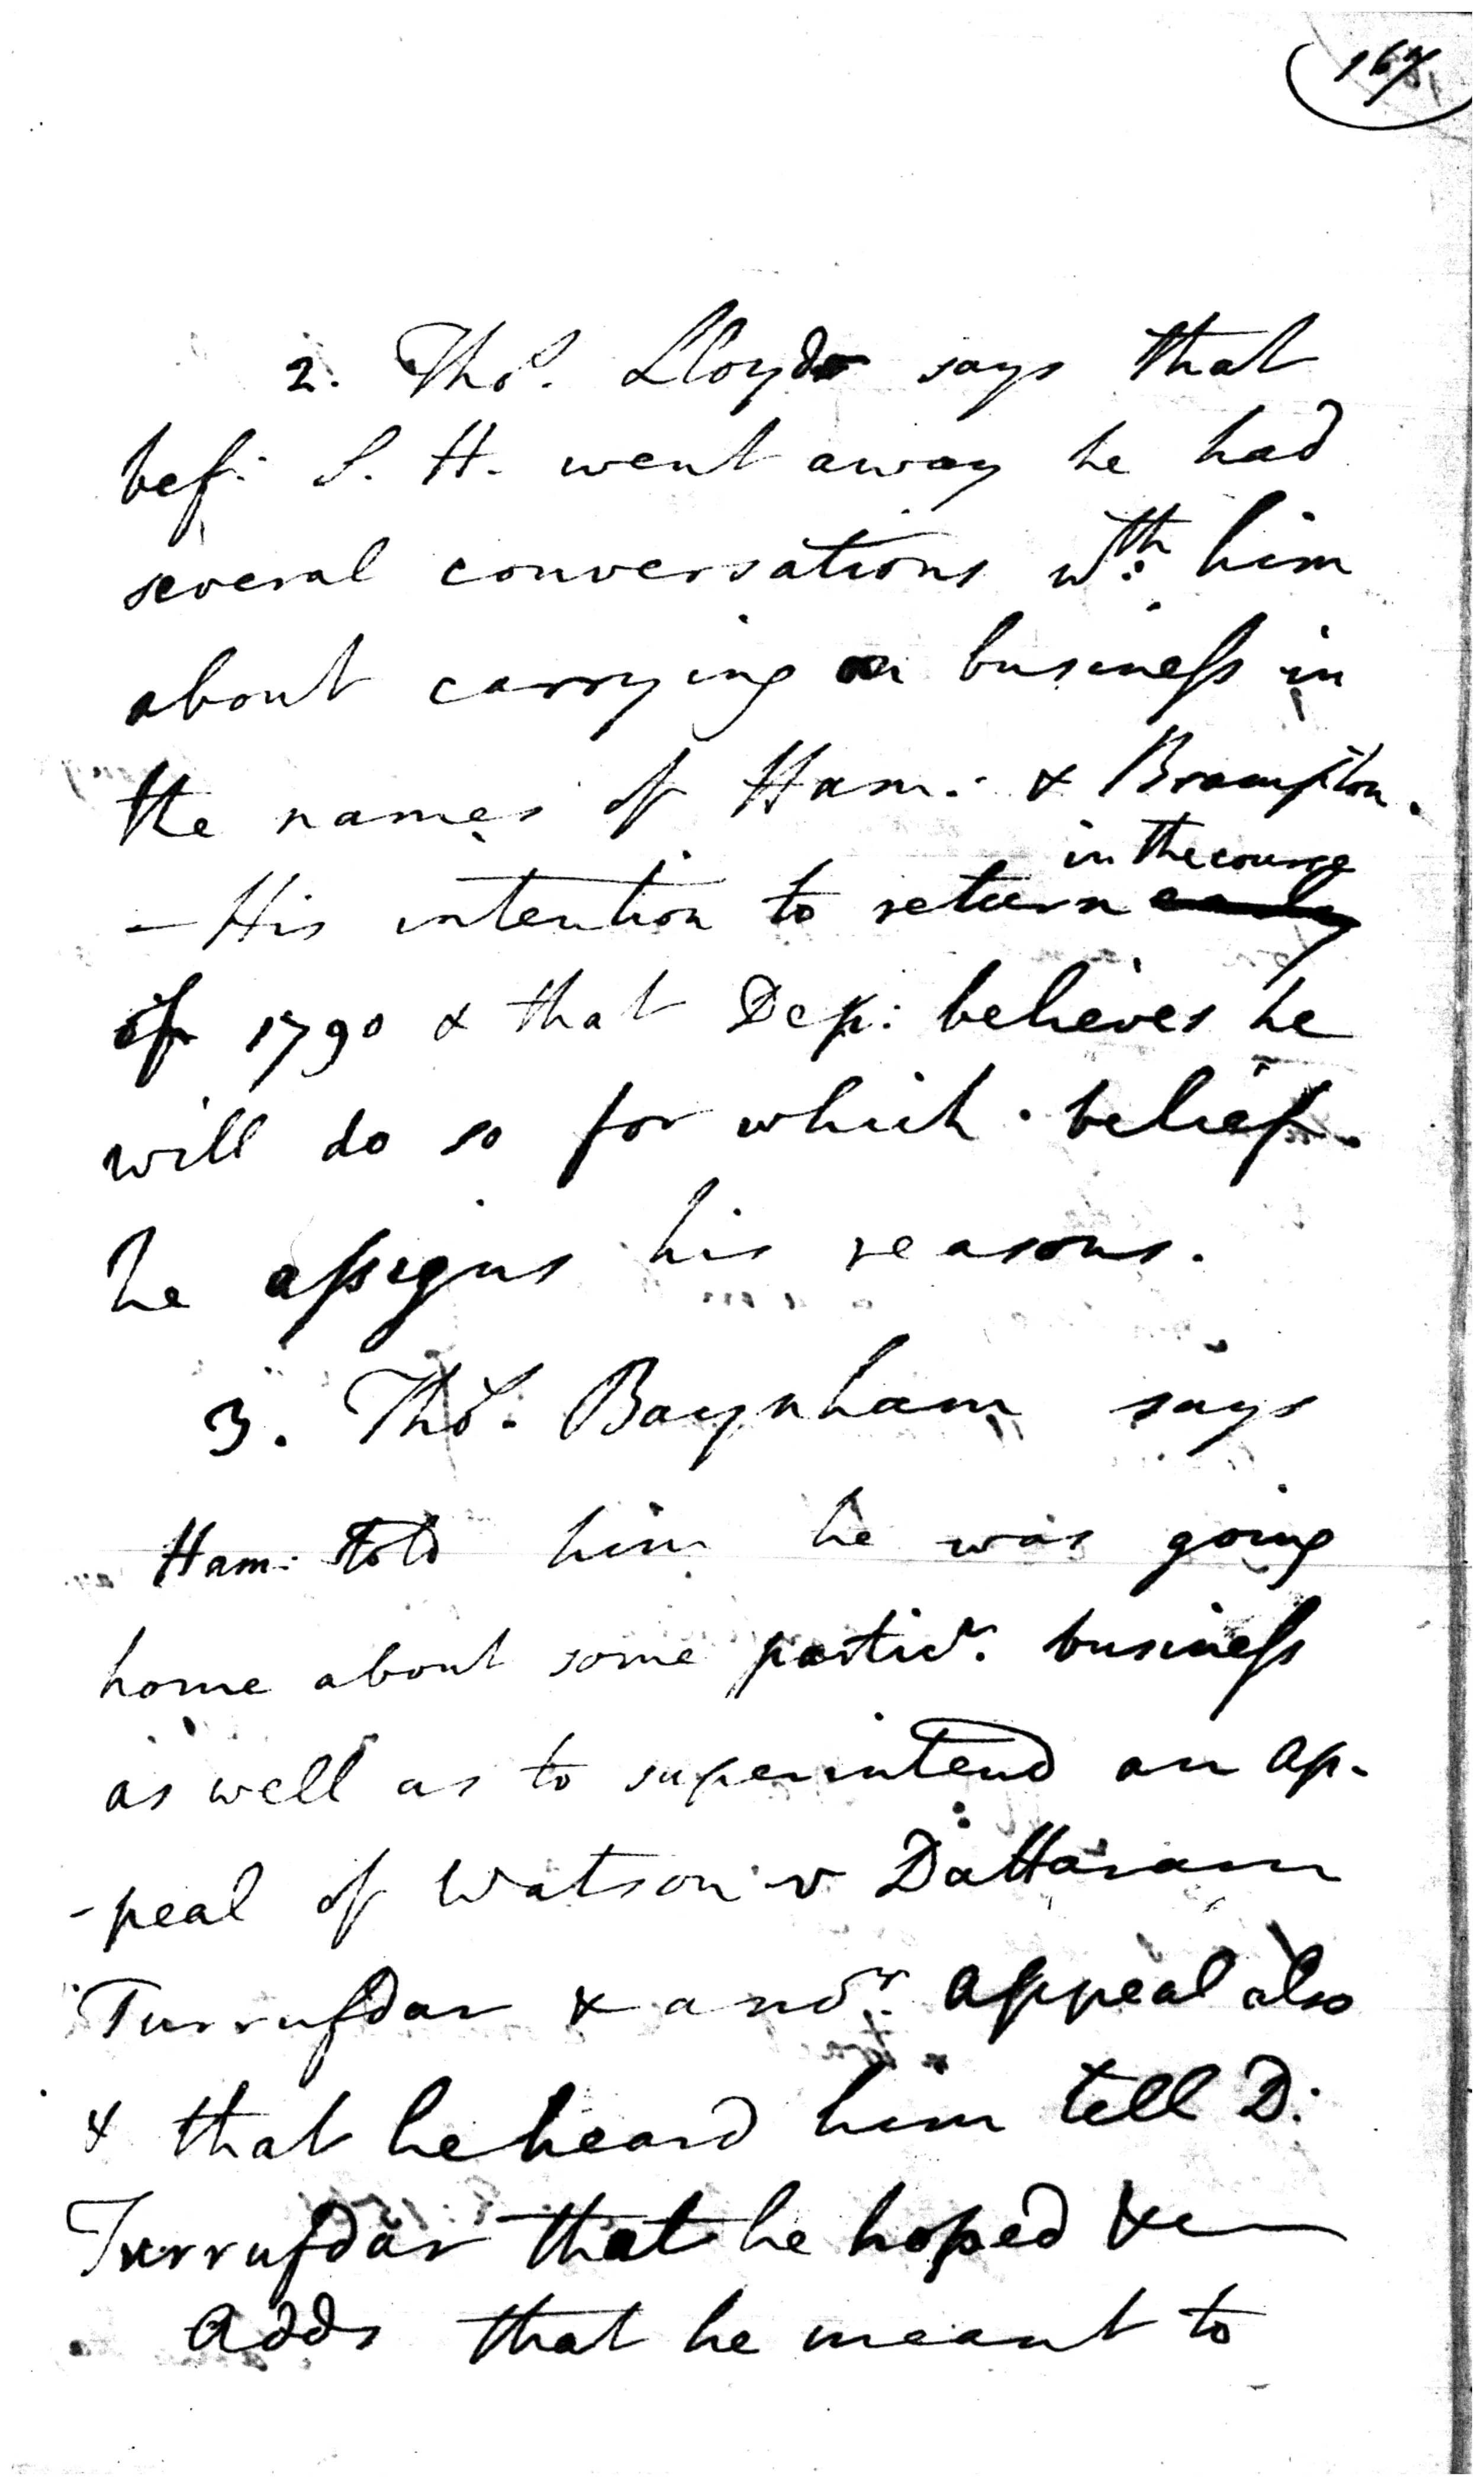 167
2. Thos. Lloyd says that
bef: S. H. went away he had
several conversations wth: him
about carrying on business in
the names of Ham: & Brampton.
in the course
— His intention to return early
of 1790 & that Dep: believes he
will do so for which belief
he assigns his reasons.
3. Thos. Baynham says
Ham: told him he was going
home about some particr. business
as well as to superintend an ap-
-peal of Watson v Dattaram
Turrufdar & anor. appeal also
& that he heard him tell D:
Turrufdar that he hoped &c —
Adds that he meant to